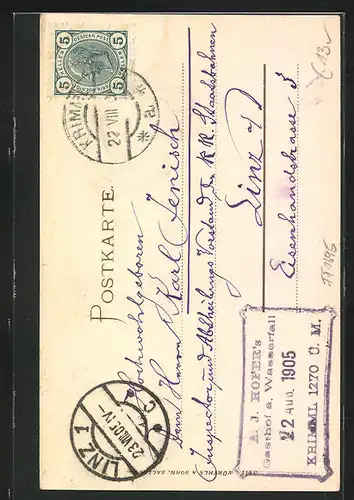 POSTKARTE.
5 5
5 HELLER 5
KRIMML
22 VIII
* a *
Hochwohlgeboren
Herrn Karl Jenisch
Inspector und Abtheilungs Vorstand der k. k. Staatsbahnen
Linz a/D
Eisenhandstrasse 3
A. J. HOFER's
Gasthof a. Wasserfall
22 AUG. 1905
KRIMML 1270 U. M.
LINZ 1
23.VIII.05.IV
C
WÜRTHLE & SOHN, SALZBURG